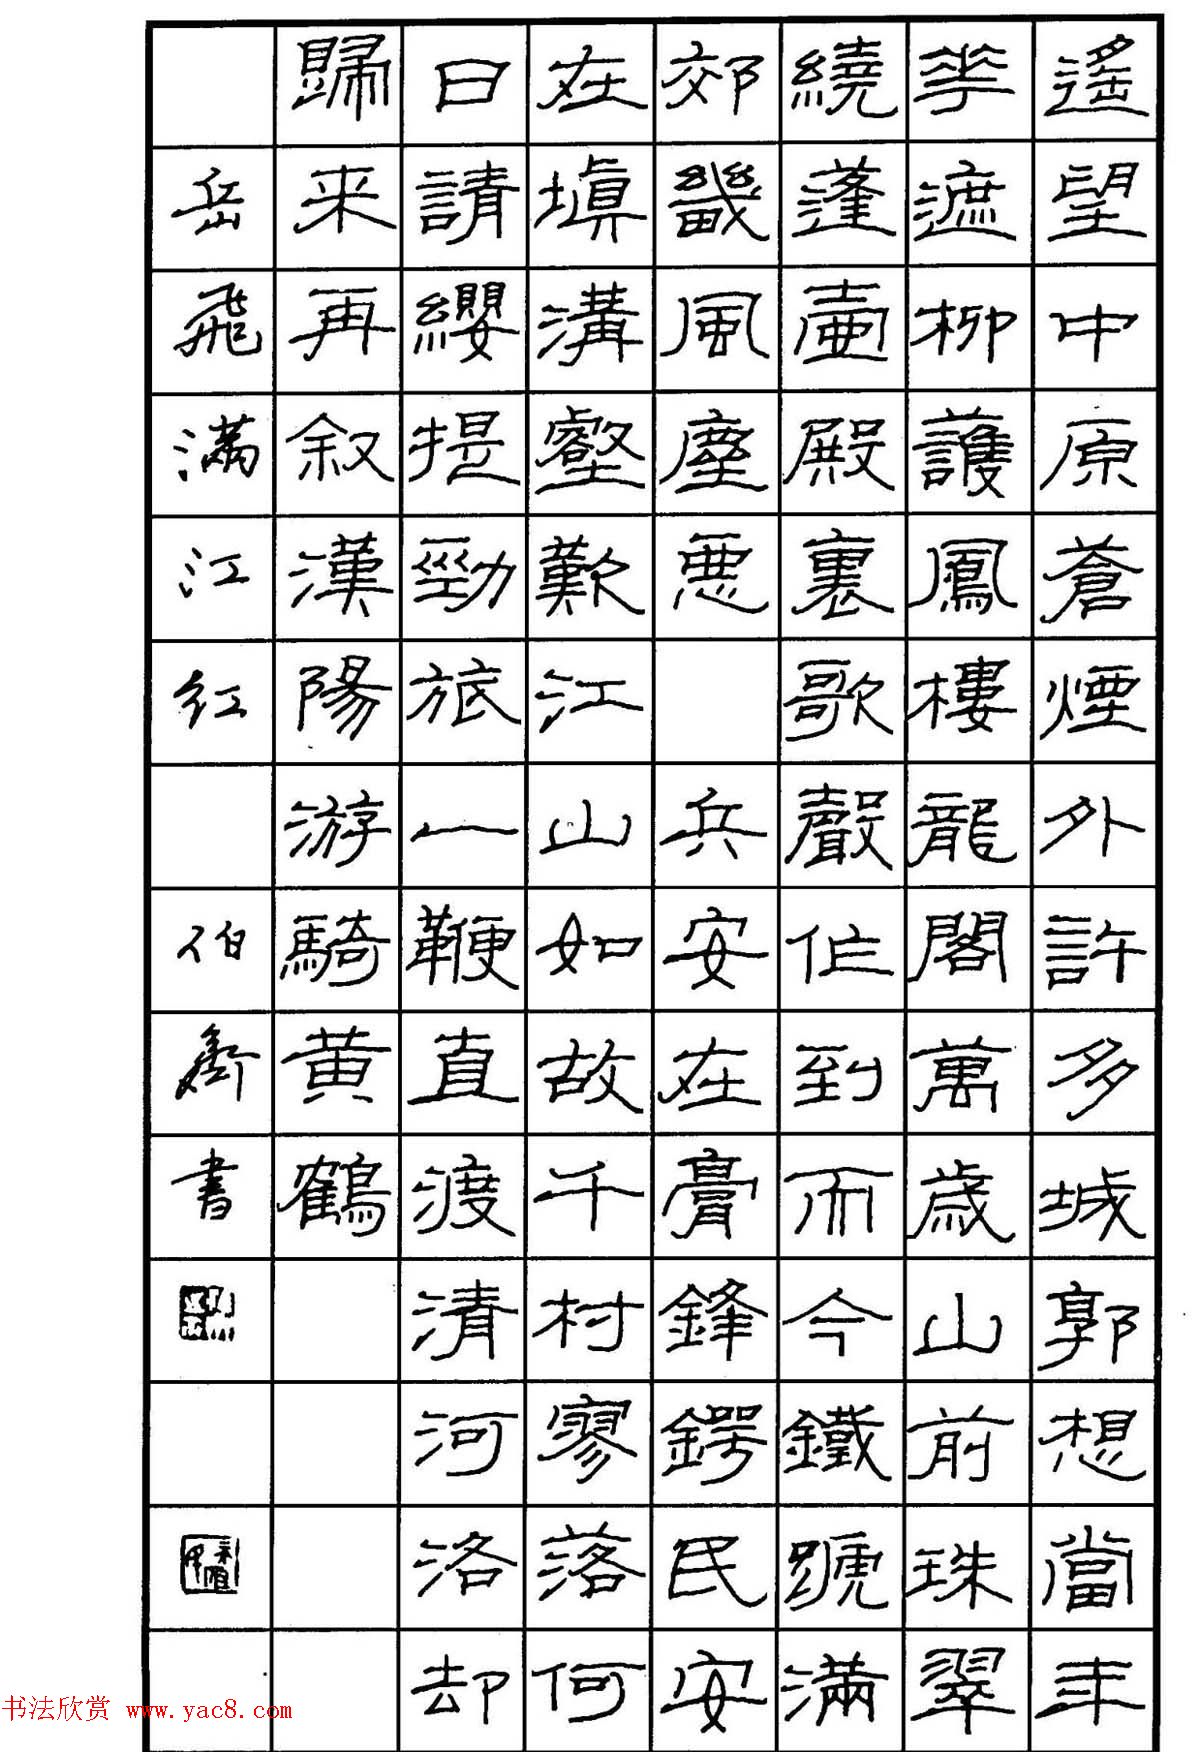 遙望中原蒼煙外許多城郭想當年
華遮柳護鳳樓龍閣萬歲山前珠翠
繞蓬壷殿裏歌聲作到而今鐵蹏滿
郊畿風塵悪 兵安在膏鋒鍔民安
在填溝壑歎江山如故千村寥落何
日請纓提勁旅一鞭直渡清河洛却
歸来再叙漢陽游騎黄鶴
岳飛滿江红 伯書
书法欣赏 www.yac8.com